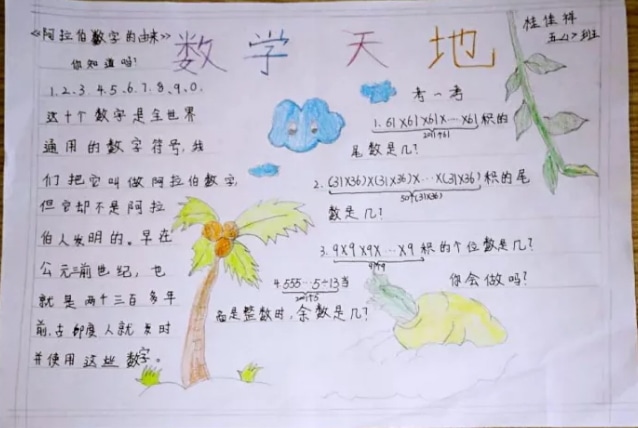 数学天地
桂佳祥
五<1>班
《阿拉伯数字的由来》
你知道吗?
1、2、3、4、5、6、7、8、9、0.
这十个数字是全世界
通用的数字符号,我
们把它叫做阿拉伯数字,
但它却不是阿拉
伯人发明的。早在
公元三前世纪,也
就是两千三百多年
前,古印度人就发时
并使用这些数字。
考一考
1. 61×61×61×…×61积的
尾数是几?
2. (31×36)×(31×36)×…×(31×36)积的尾
50个(31×36)
数是几?
3. 9×9×9×…×9积的个位数是几?
你会做吗?
4. 555…5÷13当
商是整数时,余数是几?